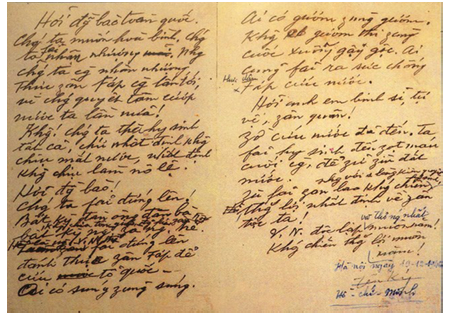 Hỡi đg bào toàn quốc.
Chg ta muốn hoà bình, chg
ta fải nhân nhượng. Nhg
chg ta cg nhân nhượng,
thực zân Fáp cg lấn tới,
vì chg quyết tâm cướp
nước ta lần nữa!
Khg! chg ta thà hy sinh
tất cả, chứ nhất định khg
chịu mất nước, nhất định
khg chịu làm nô lệ.
Hỡi đg bào!
Chg ta fải đứng lên!
Bất kỳ đàn ông, đàn bà
đứng lên
đánh thực zân Fáp để
cứu tổ quốc.
Ai có súng zùng súng.
Ai có gươm zùng gươm.
Khg có gươm thì zùng
cuốc xuổng gậy gộc. Ai
cũng fải ra sức chống
Fáp cứu nước.
Hỡi anh em binh sĩ tự
vệ, zân quân!
Zờ cứu nước đã đến. Ta
fải hy sinh đến zọt máu
cuối cg, để zữ zìn đất
nước.
Zù fải zan lao kháng chiến,
thắng lợi nhất định về zân
tộc ta!
V.N. độc lập và thống nhất muôn năm!
Kháng chiến thắng lợi muôn
năm!
Hà nội ngày 19-12-1946
Hồ-chí-Minh